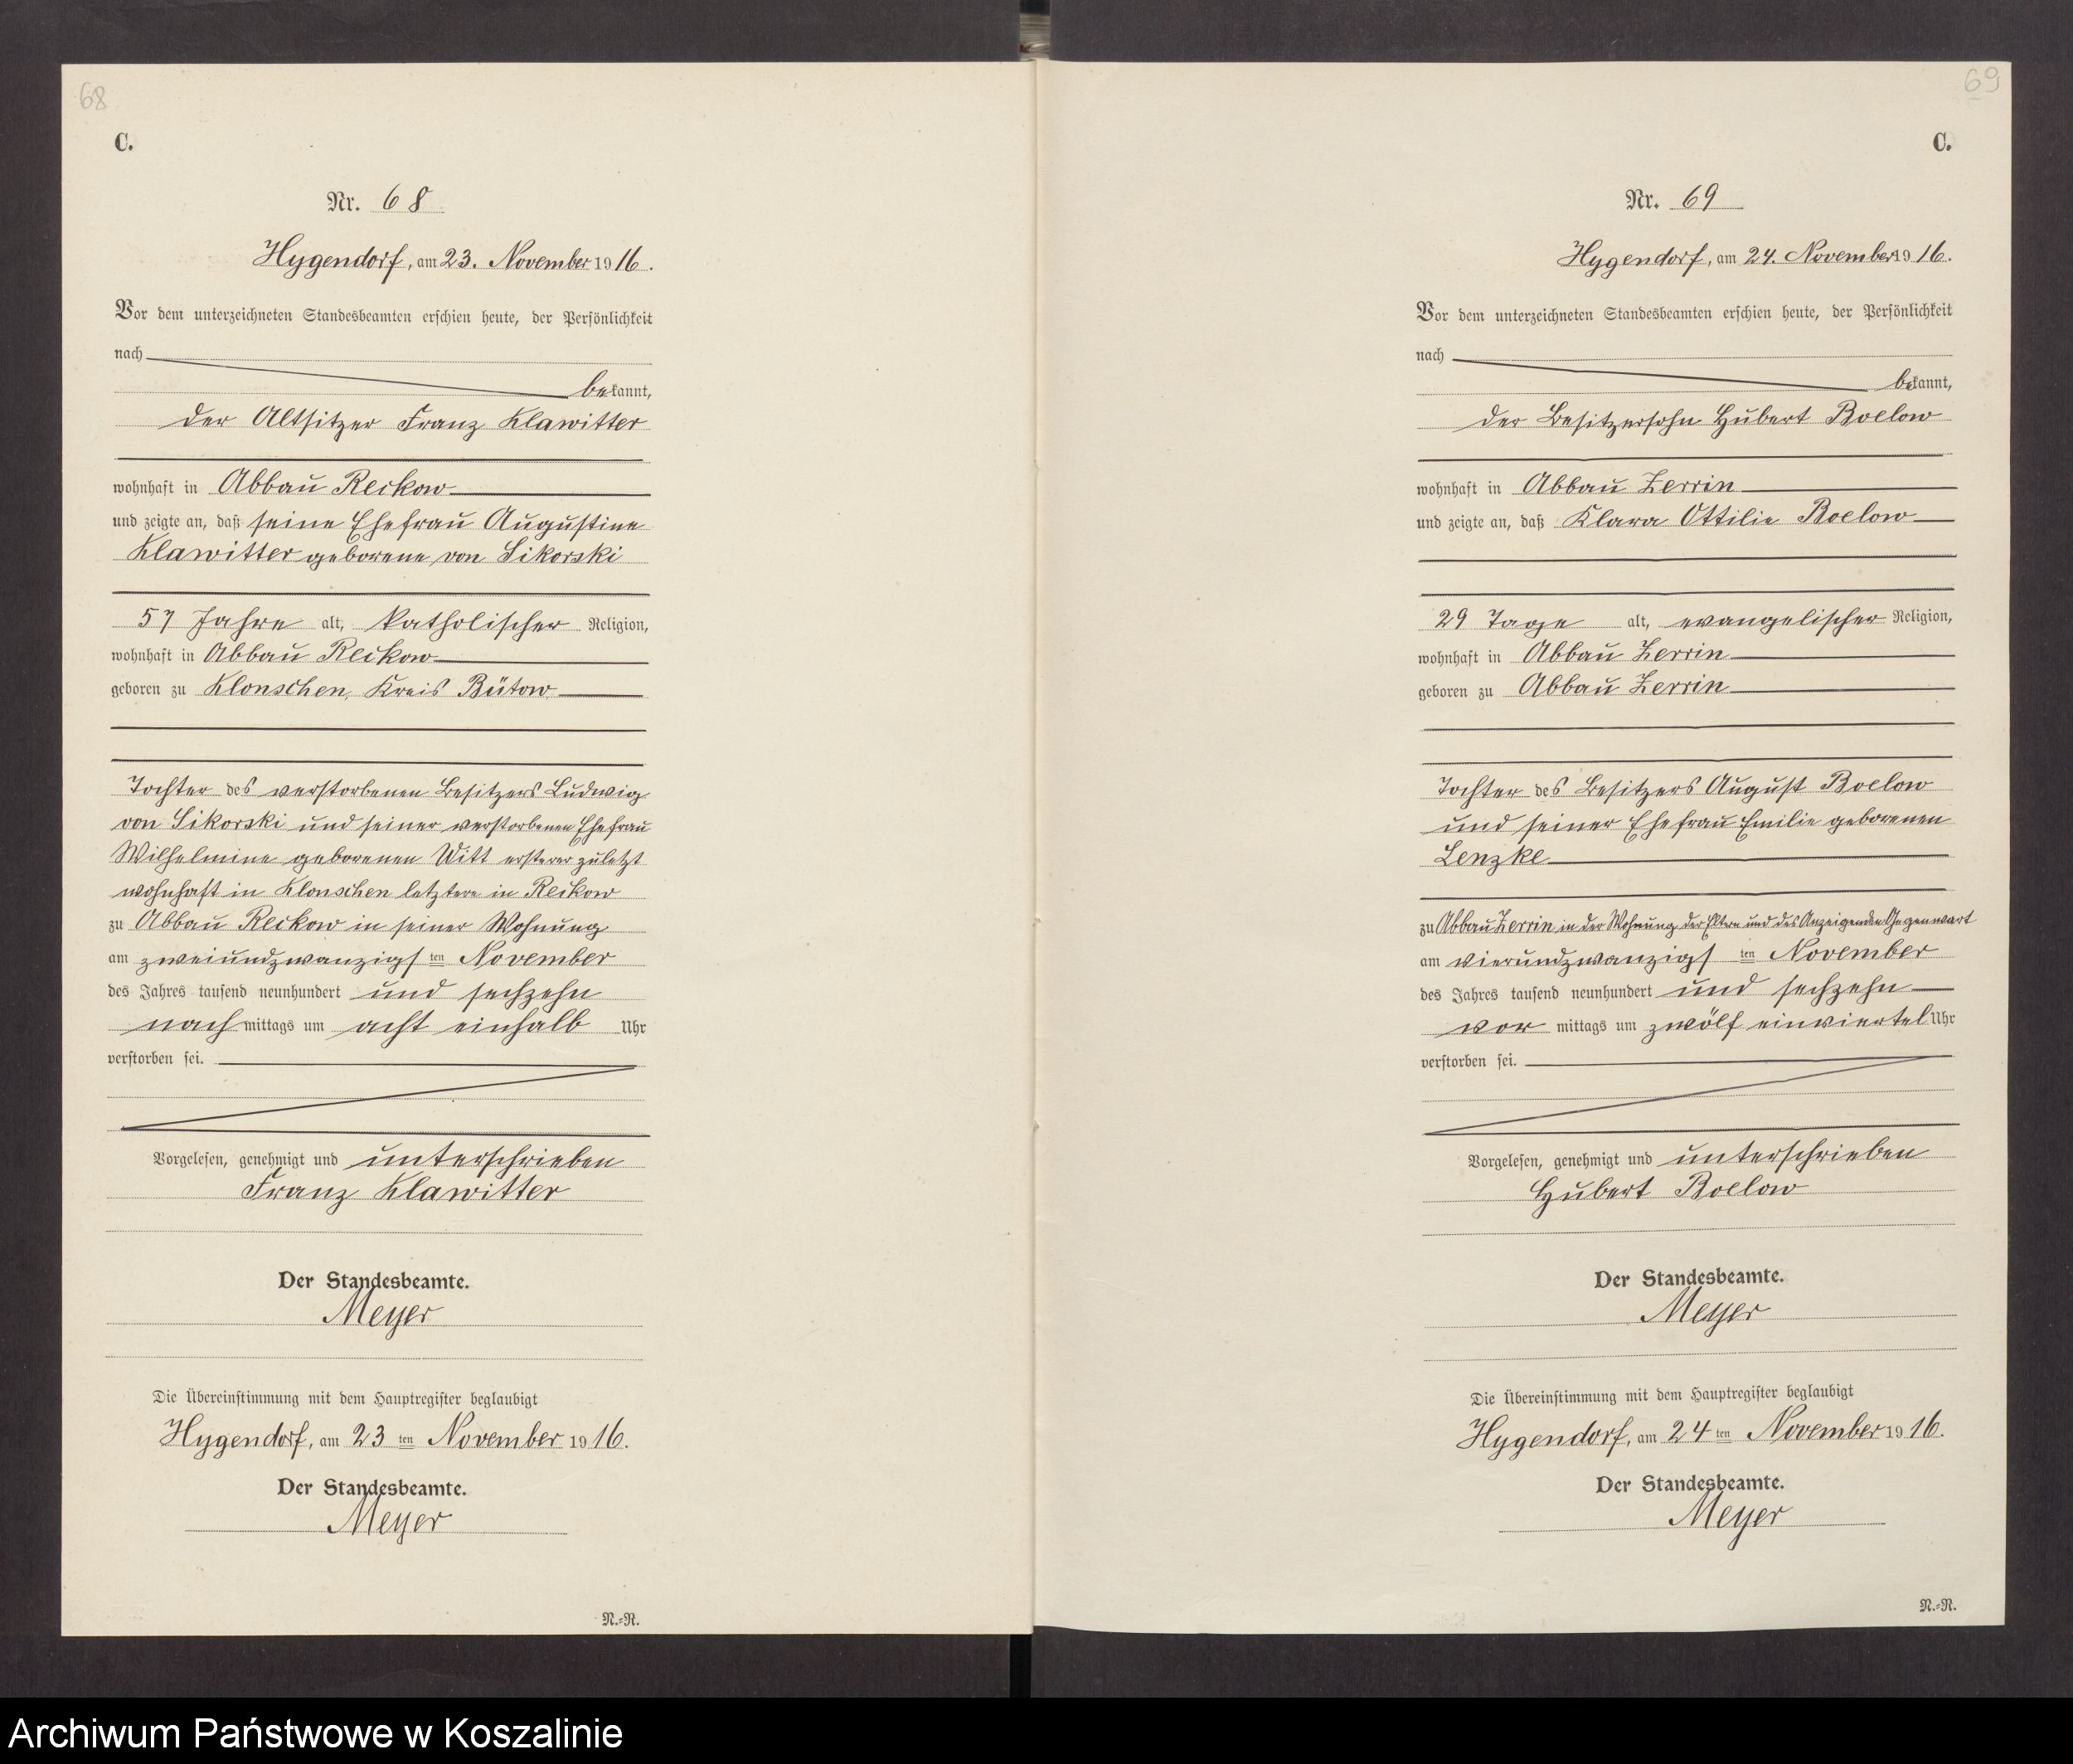 68
C.
Nr. 68
Hygendorf, am 23. November 1916.
Vor dem unterzeichneten Standesbeamten erschien heute, der Persönlichkeit
nach
bekannt,
der Altsitzer Franz Klawitter
wohnhaft in Abbau Reckow
und zeigte an, daß seine Ehefrau Augustine
Klawitter geborene von Sikorski
57 Jahre alt, katholischer Religion,
wohnhaft in Abbau Reckow
geboren zu Klonschen, Kreis Bütow
Tochter des verstorbenen Besitzers Ludwig
von Sikorski und seiner verstorbenen Ehefrau
Wilhelmine geborenen Witt ersterer zuletzt
wohnhaft in Klonschen letztere in Reckow
zu Abbau Reckow in seiner Wohnung
am zweiundzwanzigsten November
des Jahres tausend neunhundert und sechzehn
nachmittags um acht einhalb Uhr
verstorben sei.
Vorgelesen, genehmigt und unterschrieben
Franz Klawitter
Der Standesbeamte.
Meyer
Die Übereinstimmung mit dem Hauptregister beglaubigt
Hygendorf, am 23 ten November 1916.
Der Standesbeamte.
Meyer
N.-R.
69
C.
Nr. 69
Hygendorf, am 24. November 1916.
Vor dem unterzeichneten Standesbeamten erschien heute, der Persönlichkeit
nach
bekannt,
der Besitzersohn Hubert Boelow
wohnhaft in Abbau Zerrin
und zeigte an, daß Klara Ottilie Boelow
29 Tage alt, evangelischer Religion,
wohnhaft in Abbau Zerrin
geboren zu Abbau Zerrin
Tochter des Besitzers August Boelow
und seiner Ehefrau Emilie geborenen
Lenzke
zu Abbau Zerrin in der Wohnung der Eltern und des Anzeigenden Gegenwart
am vierundzwanzigsten November
des Jahres tausend neunhundert und sechzehn
vor mittags um zwölf einviertel Uhr
verstorben sei.
Vorgelesen, genehmigt und unterschrieben
Hubert Boelow
Der Standesbeamte.
Meyer
Die Übereinstimmung mit dem Hauptregister beglaubigt
Hygendorf, am 24 ten November 1916.
Der Standesbeamte.
Meyer
N.-R.
Archiwum Państwowe w Koszalinie